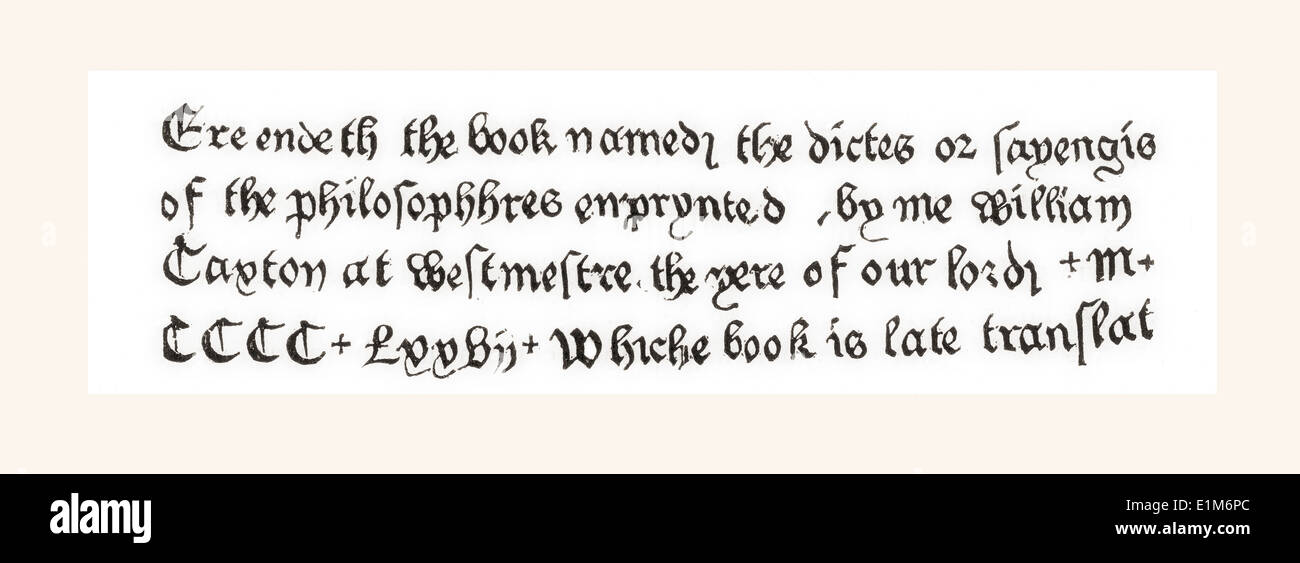 Ere endeth the book named the dictes or sayengis
of the philosophhres enprynted , by me william
Caxton at westmestre the yere of our lord + M +
CCCC + Lxxvij + Whiche book is late translat
a a
alamy
Image ID: E1M6PC
www.alamy.com